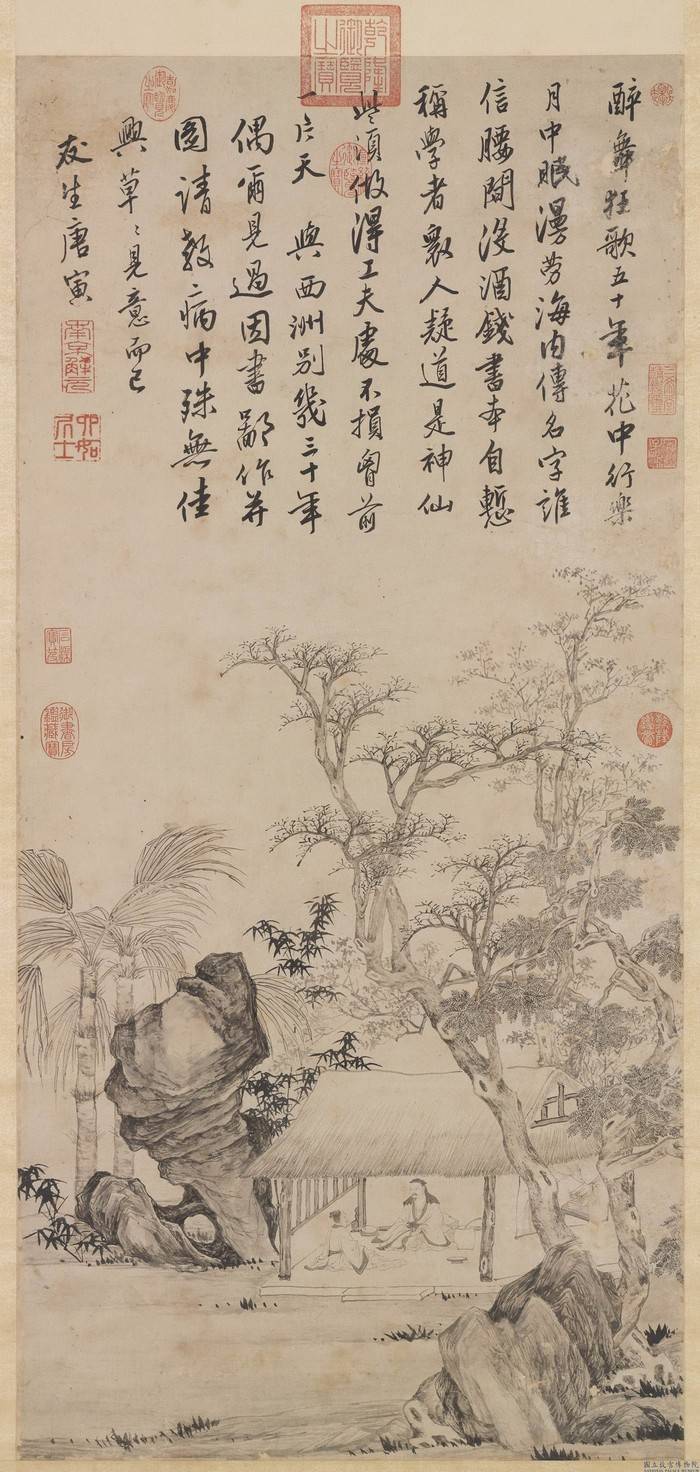 乾隆御覽之寶
醉舞狂歌五十年花中行樂
月中眠漫勞海內傳名字誰
信腰間沒酒錢書本自慙
稱學者衆人疑道是神仙
些須做得工夫處不損胷前
一片天 與西洲別幾三十年
偶爾見過因書鄙作并
圖請教病中殊無佳
興草〻見意而已
友生唐寅
南京解元
六如居士
嘉慶御覽之寶
宣統御覽之寶
御書房鑑藏寶
國立故宮博物院